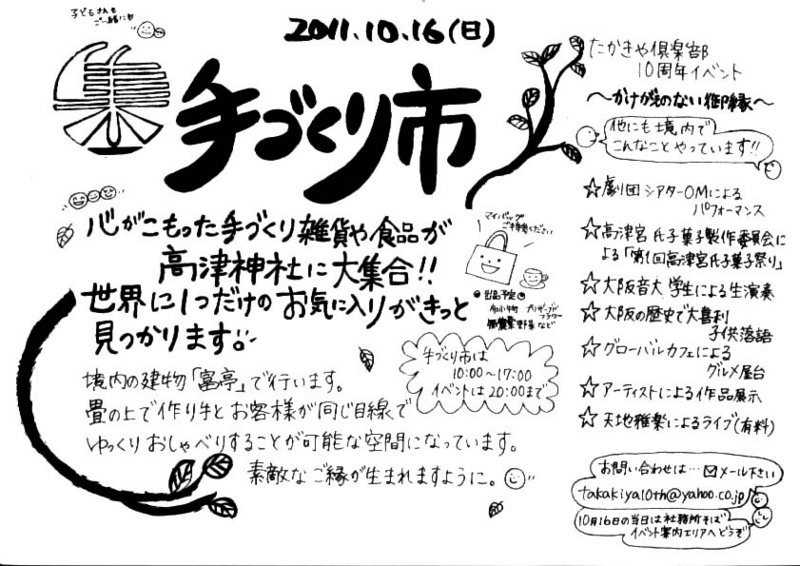 子どもさんも
ご一緒に
2011.10.16(日)
手づくり市
心がこもった手づくり雑貨や食品が
高津神社に大集合!!
世界に1つだけのお気に入りがきっと
見つかります。
マイバッグ
ご持参ください
出品予定
布小物 プリザーブド
フラワー
無農薬野菜 など
境内の建物「富亭」で行います。
畳の上で作り手とお客様が同じ目線で
ゆっくりおしゃべりすることが可能な空間になっています。
素敵なご縁が生まれますように。
手づくり市は
10:00〜17:00
イベントは20:00まで
たかきや倶楽部
10周年イベント
〜かけがえのない御縁〜
他にも境内で
こんなことやっています!!
☆劇団シアターOMによる
パフォーマンス
☆高津宮氏子菓子製作委員会に
よる「第1回高津宮氏子菓子祭り」
☆大阪音大 学生による生演奏
☆大阪の歴史で大喜利
子供落語
☆グローバルカフェによる
グルメ屋台
☆アーティストによる作品展示
☆天地雅楽によるライブ(有料)
お問い合わせは…✉メール下さい
takakiya10th@yahoo.co.jp
10月16日の当日は社務所そば
イベント案内エリアへどうぞ